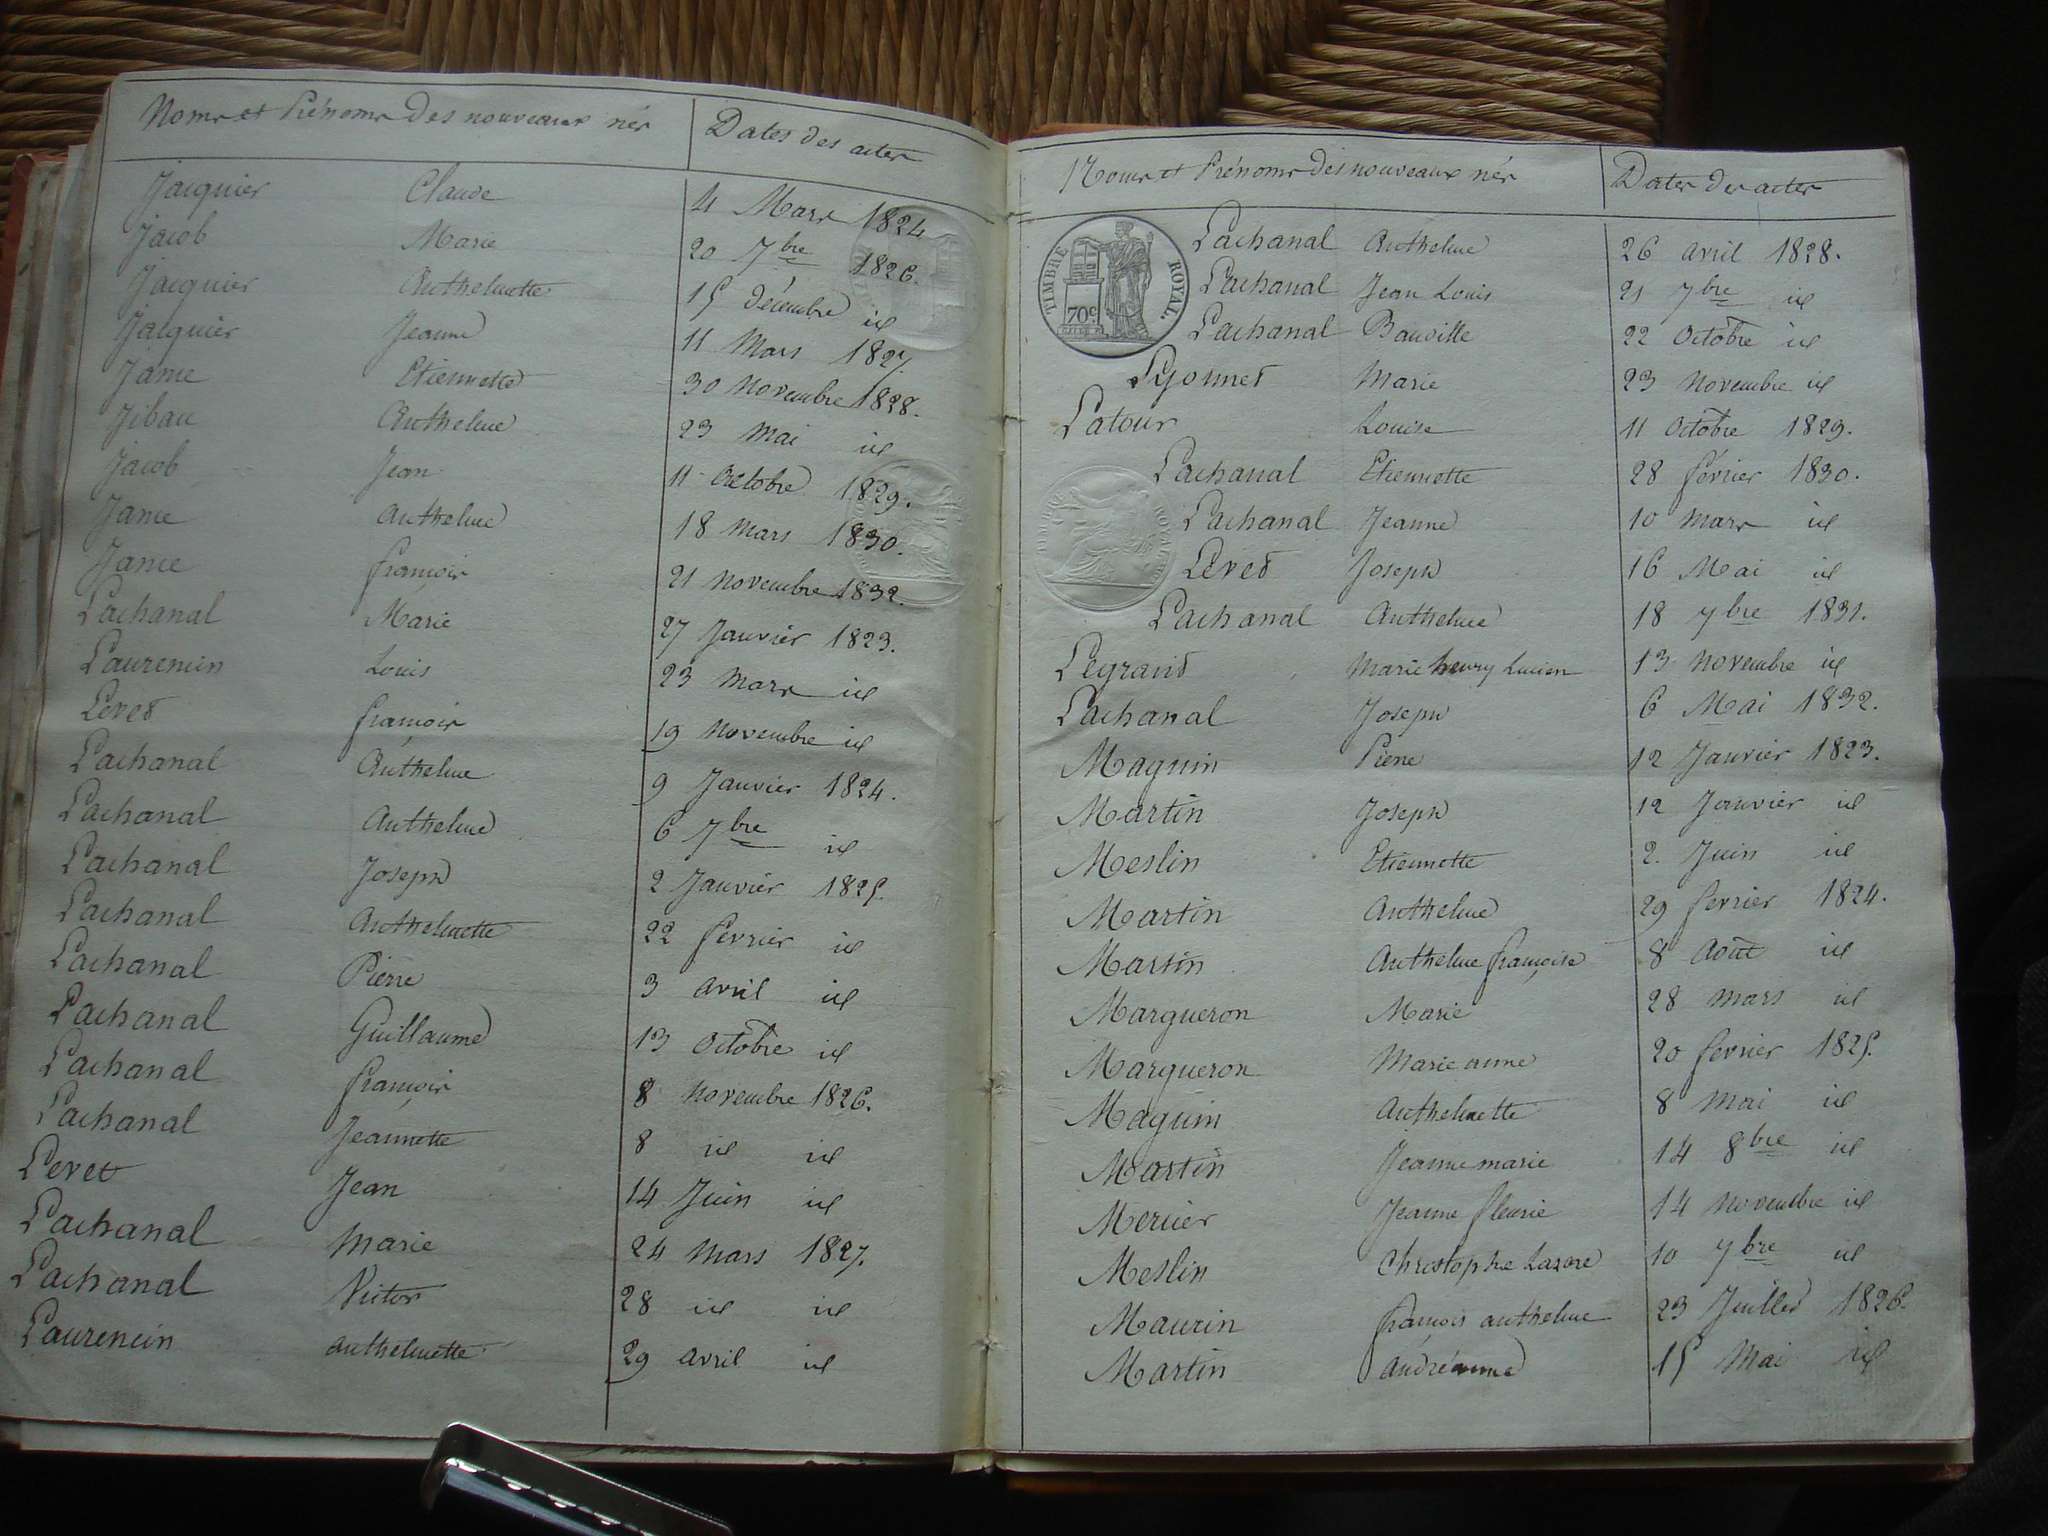 Noms et Prénoms des nouveaux nés Dates des actes
Jacquier Claude 4 Mars 1824
Jacob Marie 20 7bre 1826.
Jacquier Anthelmette 15 décembre id
Jacquier Jeanne 11 Mars 1827.
Jame Etiennette 30 Novembre 1828.
Jiban Anthelme 23 Mai id
Jacob Jean 11 Octobre 1829.
Jame Anthelme 18 Mars 1830.
Jame françois 21 Novembre 1832.
Lachanal Marie 27 Janvier 1823.
Laurencin Louis 23 Mars id
Levet françois 19 Novembre id
Lachanal Anthelme 9 Janvier 1824.
Lachanal Anthelme 6 7bre id
Lachanal Joseph 2 Janvier 1825.
Lachanal Anthelmette 22 fevrier id
Lachanal Pierre 3 avril id
Lachanal Guillaume 13 Octobre id
Lachanal françois 8 Novembre 1826.
Lachanal Jeannette 8 id id
Levet Jean 14 Juin id
Lachanal Marie 24 Mars 1827.
Lachanal Victor 28 id id
Laurencin anthelmette 29 avril id
Noms et Prénoms des nouveaux nés Dates des actes
TIMBRE ROYAL.
70c.
Lachanal Anthelme 26 avril 1828.
Lachanal Jean Louis 21 7bre id
Lachanal Bauville 22 Octobre id
Lyonnet Marie 23 Novembre id
Latour Louise 11 Octobre 1829.
Lachanal Etiennette 28 février 1830.
Lachanal Jeanne 10 Mars id
Levet Joseph 16 Mai id
Lachanal Anthelme 18 7bre 1831.
Legrand Marie henry Lucien 13 Novembre id
Lachanal Joseph 6 Mai 1832.
Maguin Pierre 12 Janvier 1823.
Martin Joseph 12 Janvier id
Meslin Etiennette 2. Juin id
Martin Anthelme 29 fevrier 1824.
Martin Anthelme françoise 8 Août id
Margueron Marie 28 Mars id
Margueron Marie anne 20 fevrier 1825.
Maguin Anthelmette 8 Mai id
Martin Jeanne marie 14 8bre id
Mercier Jeanne fleurie 14 Novembre id
Meslin Christophe Lazare 10 7bre id
Maurin françois anthelme 23 Juillet 1826.
Martin andréanne 15 Mai id